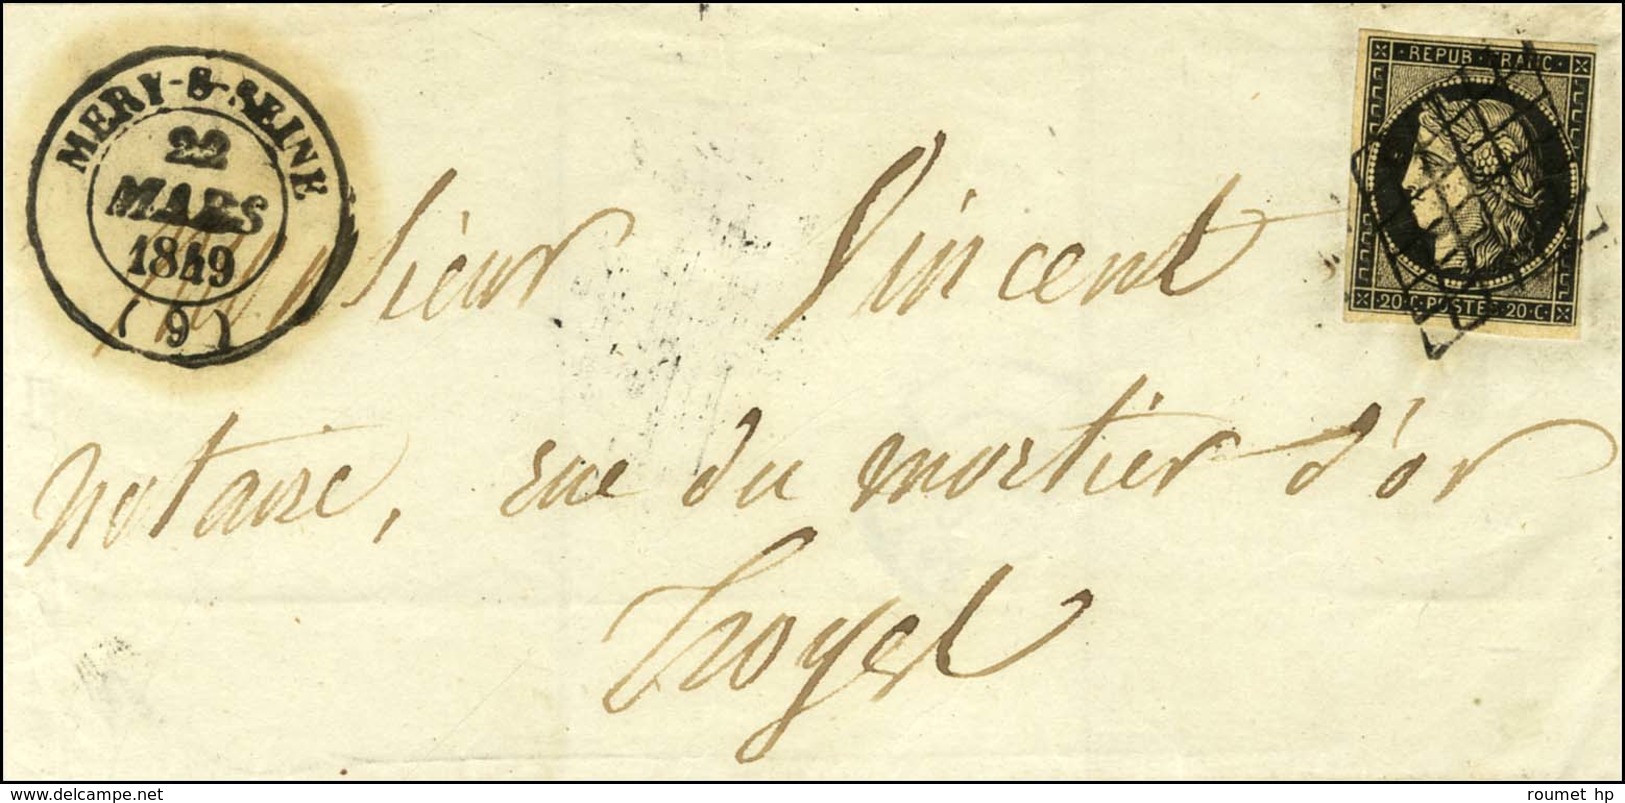 MERY-S-SEINE
22
MARS
1849
(9)
REPUB·FRANC·
20·C·POSTES·20·C·
Monsieur Vincent
notaire, rue du mortier d'or
Troyes
www.delcampe.net
roumet hp